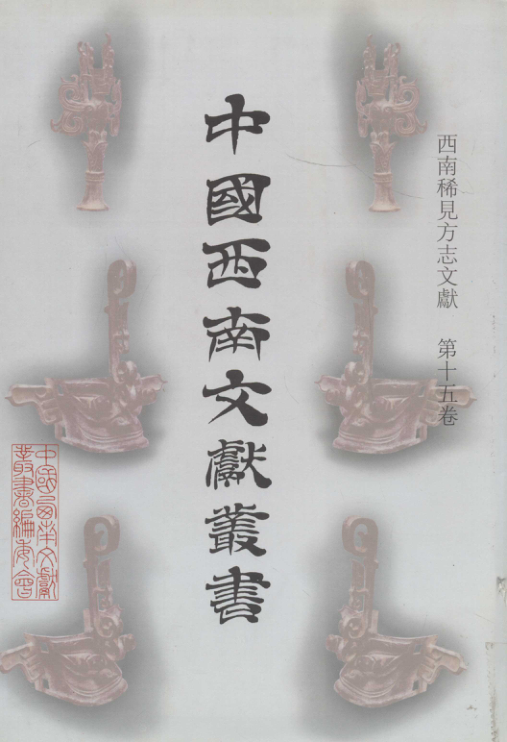 西南稀見方志文獻 第十五卷
中國西南文獻叢書
中國西南文獻
叢書編委會